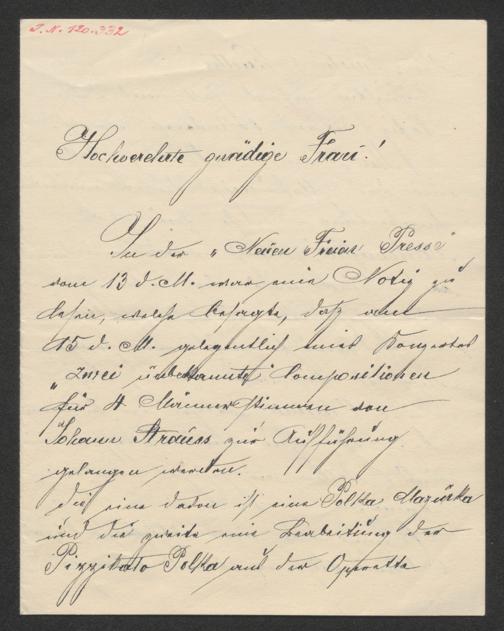 I. N. 120.332
Hochverehrte gnädige Frau!
In der „Neuen Freien Presse"
vom 13 d. M. war eine Notiz zu
lesen, welche besagte, daß am
15 d. M. gelegentlich eines Konzertes
„zwei unbekannte" Compositionen
für 4 Männerstimmen von
Johann Strauss zur Aufführung
gelangen werden.
die eine davon ist eine Polka Mazurka
und die zweite eine Bearbeitung der
Pizzikato Polka aus der Operette